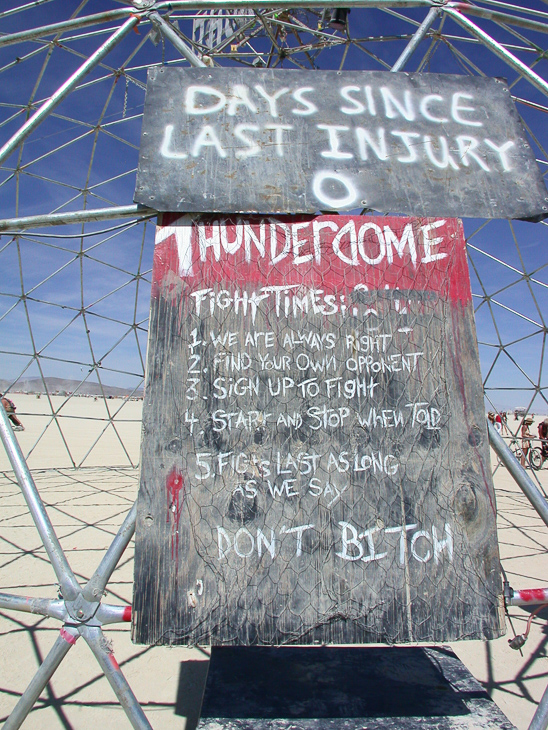 DAYS SINCE
LAST INJURY
0
THUNDERDOME
FIGHT TIMES:
1. WE ARE ALWAYS RIGHT
2. FIND YOUR OWN OPPONENT
3. SIGN UP TO FIGHT
4. START AND STOP WHEN TOLD
5. LAST AS LONG
AS WE SAY
DON'T BITCH